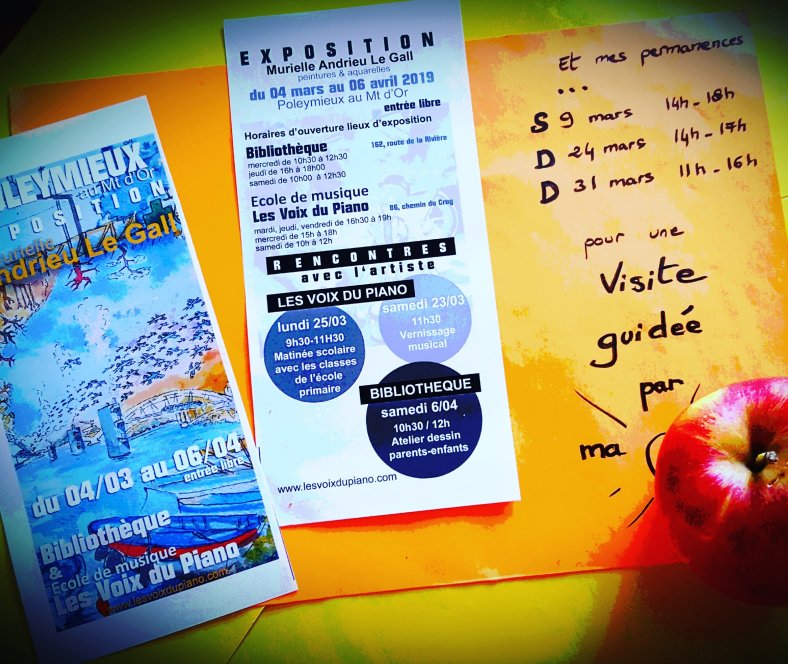 POLEYMIEUX
au Mt d'Or
EXPOSITION
Murielle
Andrieu Le Gall
du 04/03 au 06/04
entrée libre
Bibliothèque
&
Ecole de musique
Les Voix du Piano
www.lesvoixdupiano.com
EXPOSITION
Murielle Andrieu Le Gall
peintures & aquarelles
du 04 mars au 06 avril 2019
Poleymieux au Mt d'Or
entrée libre
Horaires d'ouverture lieux d'exposition
Bibliothèque 162, route de la Rivière
mercredi de 10h30 à 12h30
jeudi de 16h à 18h00
samedi de 10h00 à 12h30
Ecole de musique
Les Voix du Piano 86, chemin du Groy
mardi, jeudi, vendredi de 16h30 à 19h
mercredi de 15h à 18h
samedi de 10h à 12h
RENCONTRES
avec l'artiste
LES VOIX DU PIANO
lundi 25/03
9h30-11H30
Matinée scolaire
avec les classes
de l'école
primaire
samedi 23/03
11h30
Vernissage
musical
BIBLIOTHEQUE
samedi 6/04
10h30 / 12h
Atelier dessin
parents-enfants
www.lesvoixdupiano.com
Et mes permanences
...
S 9 mars 14h-18h
D 24 mars 14h-17h
D 31 mars 11h-16h
pour une
Visite
guidée
par
ma